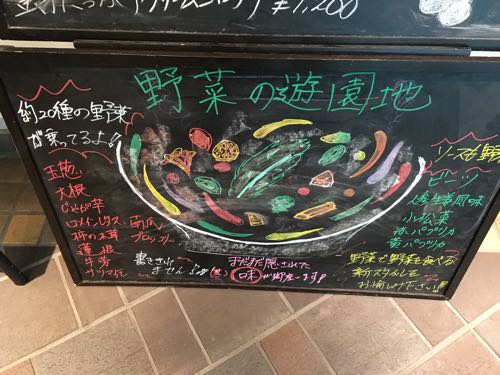 ¥1,200
野菜の遊園地
約20種の野菜
が乗ってるよ!!
玉葱
大根
じゃが芋
蓮根
牛蒡
サツマ芋
南瓜
ブロッコリー
書ききれ
ません
まだまだ隠された
味が御座います!
ソースが野
ビーツ
小松菜
赤パプリカ
黄パプリカ
野菜で野菜を食べる
新スタイルを
お楽しみ下さい!!